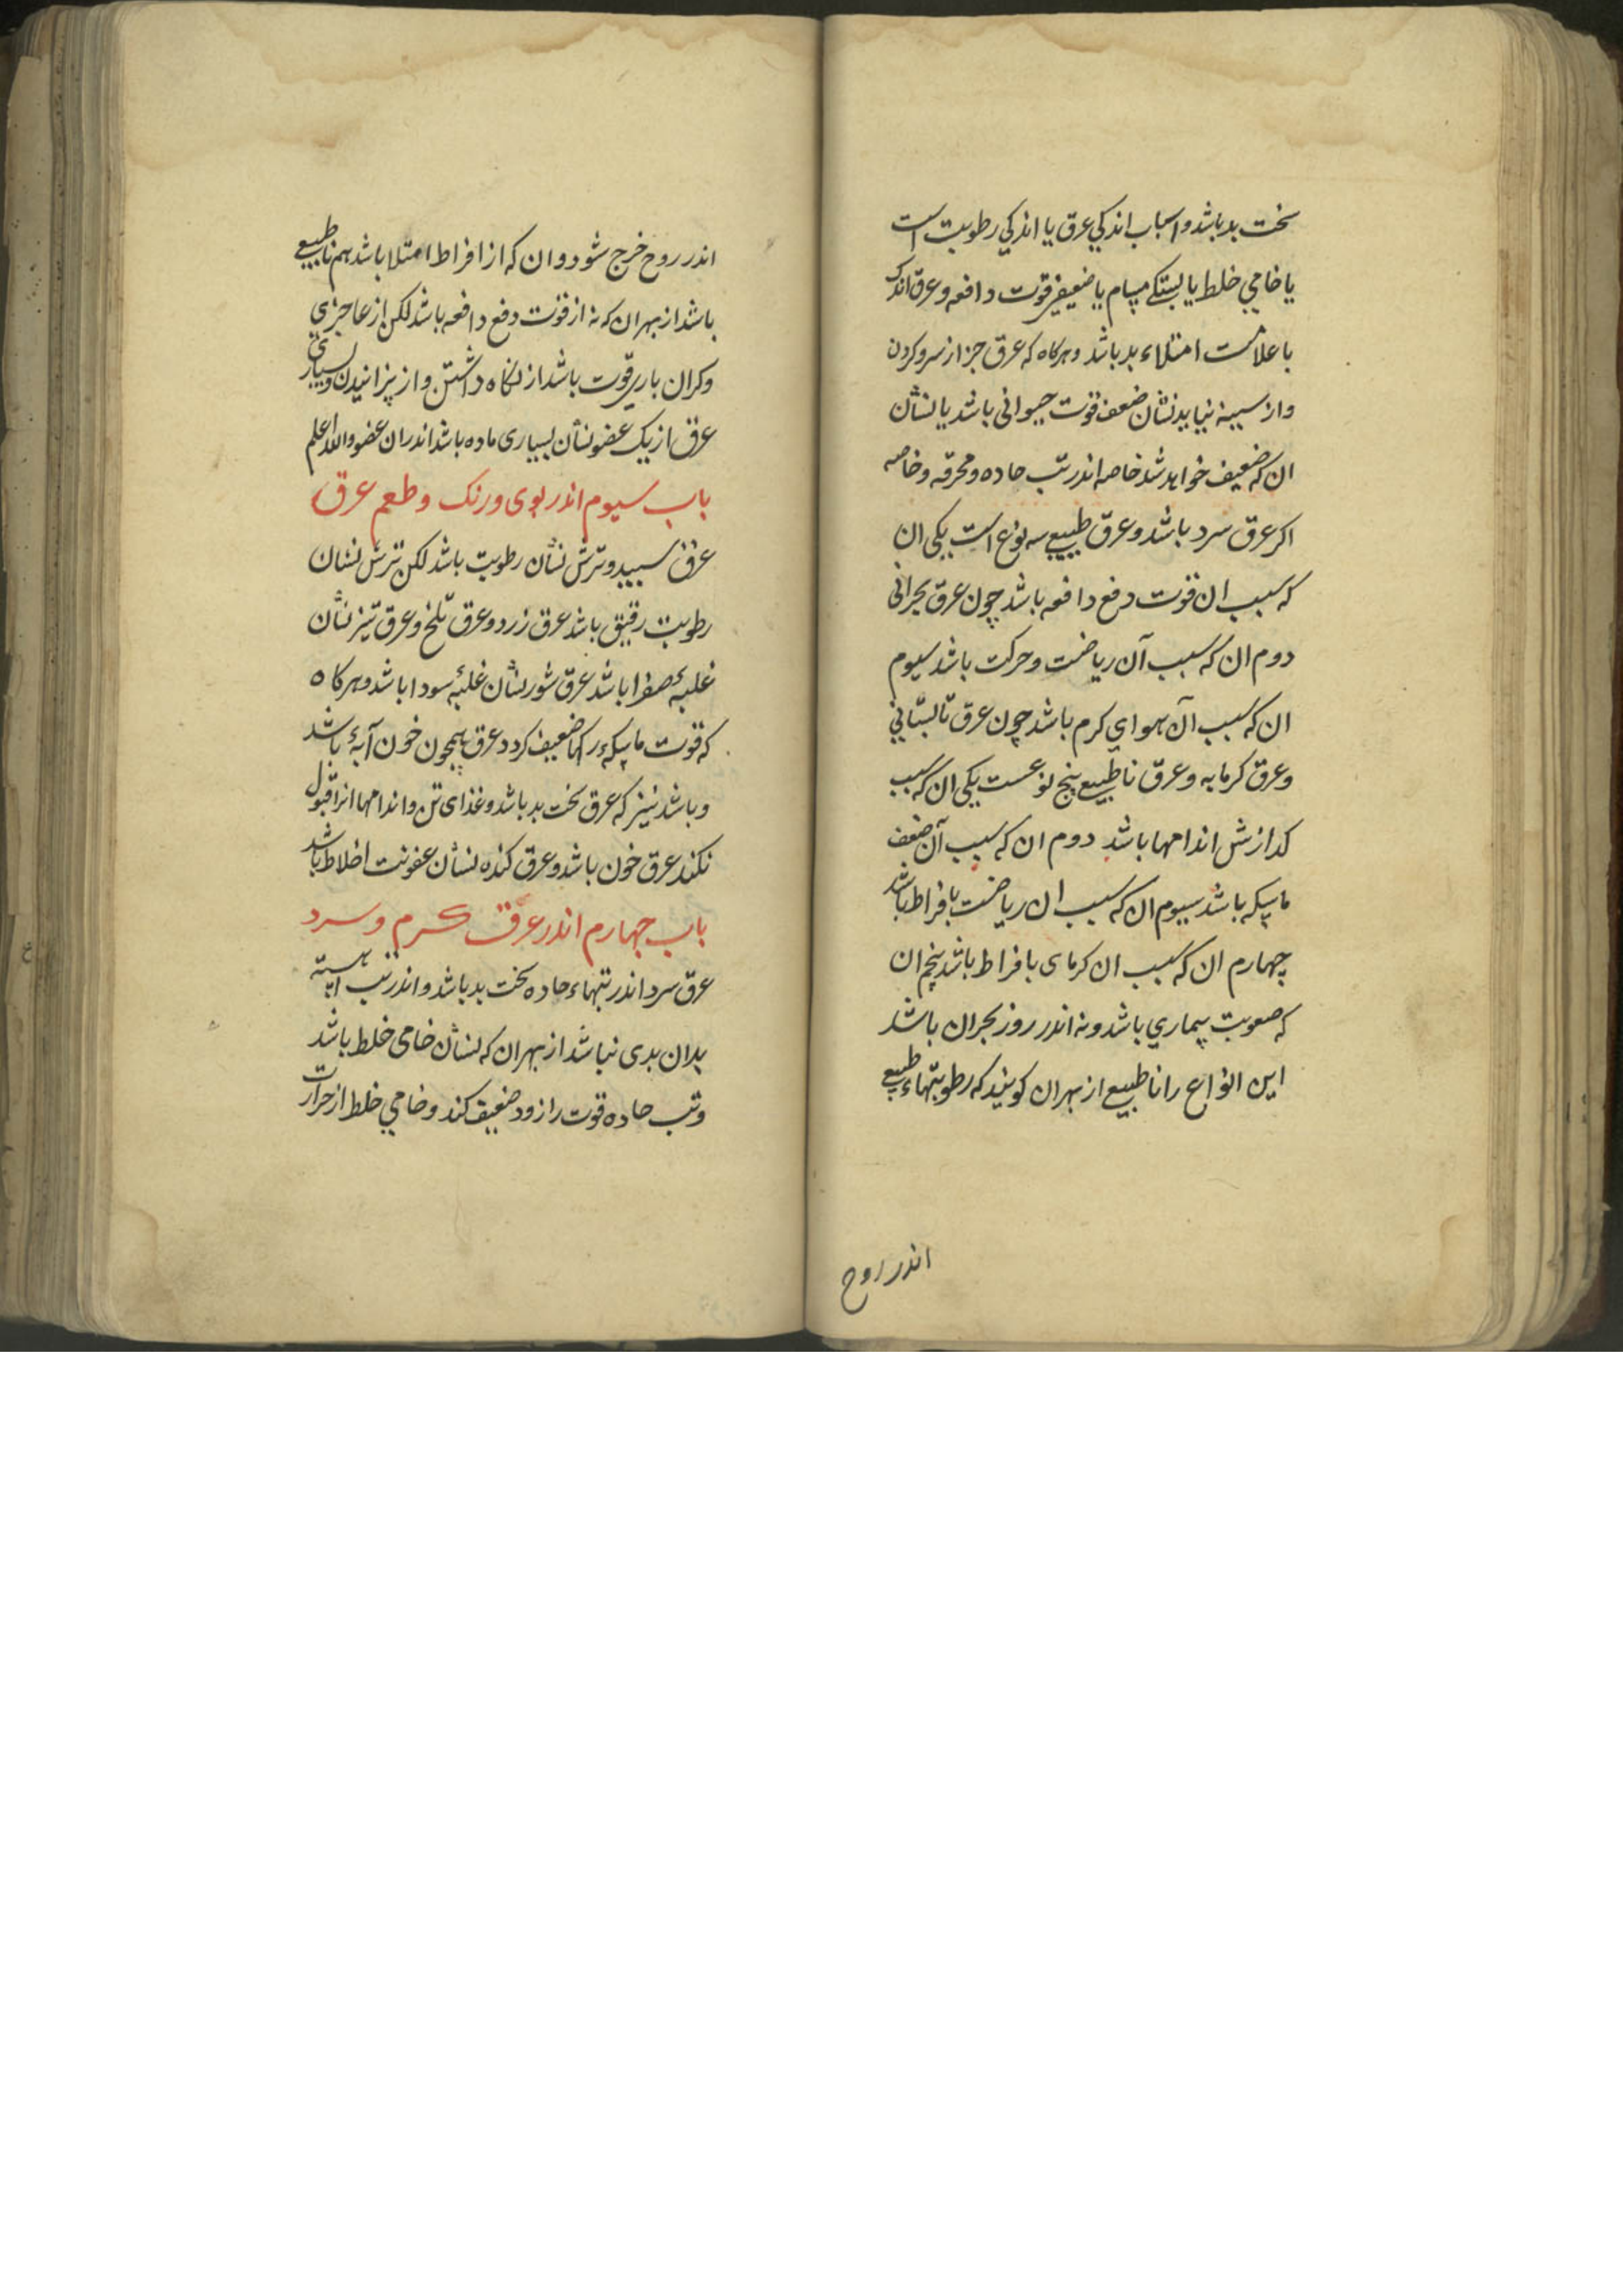 سخت بد باشد و اسباب اندکی عرق یا اندکی رطوبت است
یا خامی خلط یا بستکے مسام یا ضعیفی قوت دافعه و عرق اندک
با علامت امتلاء بد باشد و هرکاه که عرق جز از سر و کردن
و از سینه نیاید نشان ضعف قوت حیوانی باشد یا نشان
ان که ضعیف خواهد شد خاصه اندر تب حاده و محرقه و خاصه
اکر عرق سرد باشد و عرق طبیعی سه نوع است یکی ان
که سبب ان قوت دفع دافعه باشد چون عرق بحرانی
دوم ان که سبب آن ریاضت و حرکت باشد سیوم
ان که سبب آن هوای کرم باشد چون عرق تابستانی
و عرق کرمابه و عرق ناطبیع پنج نوعست یکی ان که سبب
کدازش اندامها باشد دوم ان که سبب آن ضعف
ماسکه باشد سیوم ان که سبب ان ریاضت بافراط باشد
چهارم ان که سبب ان کرمای بافراط باشد پنجم ان
که صعوبت بیماری باشد و نه اندر روز بحران باشد
این انواع را ناطبیع از بهر ان کویند که رطوبتهاء طبیع
اندر روح
اندر روح خرج شود و ان که از افراط امتلا باشد هم ناطبیعی
باشد از بهر ان که نه از قوت دفع دافعه باشد لکن از عاجزی
و کران باری قوت باشد از نکاه داشتن و از پزانیدن و بسیاری
عرق از یک عضو نشان بسیاری ماده باشد اندر ان عضو والله اعلم
باب سیوم اندر بوی و رنک و طعم عرق
عرق سبید و ترش نشان رطوبت باشد لکن ترش نشان
رطوبت رقیق باشد عرق زرد و عرق تلخ و عرق تیز نشان
غلبهٔ صفرا باشد عرق شور نشان غلبهٔ سودا باشد و هرکاه
که قوت ماسکهٔ رکها ضعیف کردد عرق همچون خون آبهٔ باشد
و باشد نیز که عرق سخت بد باشد و غذای تن و اندامها انرا قبول
نکند عرق خون باشد و عرق کنده نشان عفونت اخلاط باشد
باب چهارم اندر عرق کرم و سرد
عرق سرد اندر تبهاء حاده سخت بد باشد و اندر تب اهسته
بدان بدی نباشد از بهر ان که نشان خامی خلط باشد
و تب حاده قوت را زود ضعیف کند و خامی خلط از حرارت